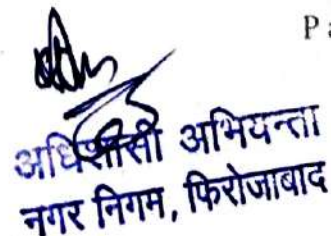 Pa
अधिशासी अभियन्ता
नगर निगम, फिरोजाबाद